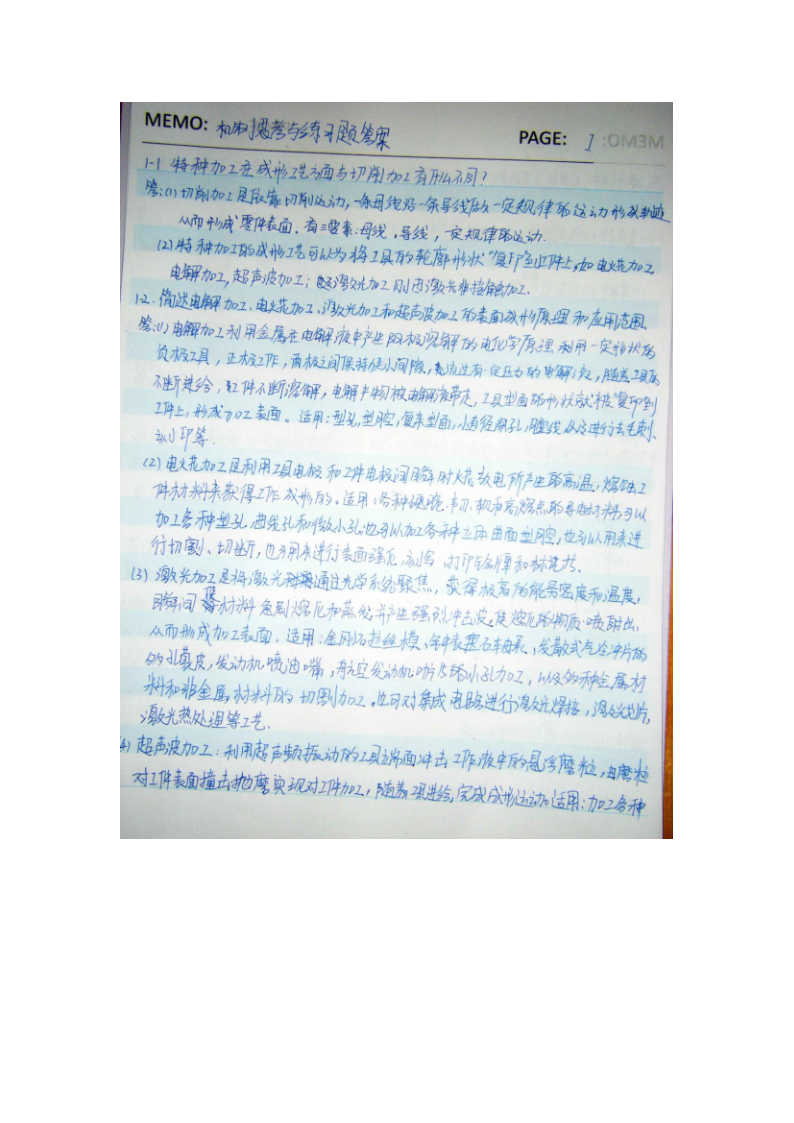 MEMO: 机制思考与练习题答案 PAGE: 1
1-1 特种加工在成形工艺方面与切削加工有什么不同？
答:(1)切削加工是依靠切削运动,一条母线沿一条导线做一定规律的运动形成轨迹
从而形成零件表面. 有三要素:母线,导线,一定规律的运动.
(2)特种加工的成形工艺可以为将工具的轮廓形状"复印"到工件上,如电火花加工,
电解加工,超声波加工; 激光加工则因激光非接触加工.
1-2. 简述电解加工、电火花加工、激光加工和超声波加工的表面成形原理和应用范围.
答:(1)电解加工利用金属在电解液中产生阳极溶解的电化学原理,利用一定形状的
负极工具,正极工作,两极之间保持住小间隙,电流过有一定压力的电解液,随着工具的
不断进给,工件不断溶解,电解产物被电解液带走,工具型面的形状就被"复印"到
工件上,形成加工表面。适用:型孔,型腔,复杂型面,小直径深孔,膛线以及进行去毛刺、
刻印等.
(2)电火花加工是利用工具电极和工件电极间瞬时火花放电所产生的高温,熔蚀工
件材料来获得工件成形的。适用:各种硬、脆、韧、软和高熔点的导电材料,可以
加工各种型孔、曲线孔和微小孔,也可以加工各种立体曲面型腔,也可以用来进
行切割、切断,也可用来进行表面强化,刻写、打印铭牌和标记等.
(3)激光加工是将激光通过光学系统聚焦,获得极高的能量密度和温度,
瞬间使材料急剧熔化和蒸发,并产生强烈冲击波,使熔化的物质喷射出,
从而形成加工表面. 适用:金刚石拉丝模、钟表宝石轴承,发散式气冷冲片的
的孔蒙皮,发动机喷油嘴,航空发动机叶片的小孔加工,以及多种金属材
料和非金属材料的切割加工,也可对集成电路进行激光焊接,激光划片,
激光热处理等工艺.
(4)超声波加工:利用超声频振动的工具端面冲击工作液中的悬浮磨粒,由磨粒
对工件表面撞击抛磨实现对工件加工,随着工具进给,完成成形运动。适用:加工各种